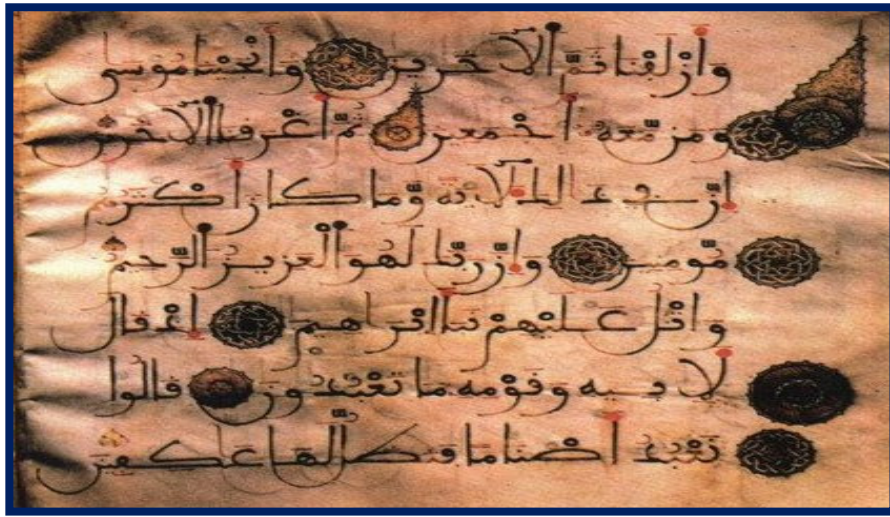 وَأَزْلَفْنَا ثَمَّ الْأَخَرِينَ وَأَنْجَيْنَا مُوسَى
وَمَن مَّعَهُ أَجْمَعِينَ ثُمَّ أَغْرَقْنَا الْأَخَرِينَ
إِنَّ فِي ذَلِكَ لَأَيَةً وَمَا كَانَ أَكْثَرُهُم
مُّومِنِينَ وَإِنَّ رَبَّكَ لَهُوَ الْعَزِيزُ الرَّحِيمُ
وَاتْلُ عَلَيْهِمْ نَبَأَ إِبْرَاهِيمَ إِذْ قَالَ
لِأَبِيهِ وَقَوْمِهِ مَا تَعْبُدُونَ قَالُوا
نَعْبُدُ أَصْنَامًا فَنَظَلُّ لَهَا عَكِفِينَ